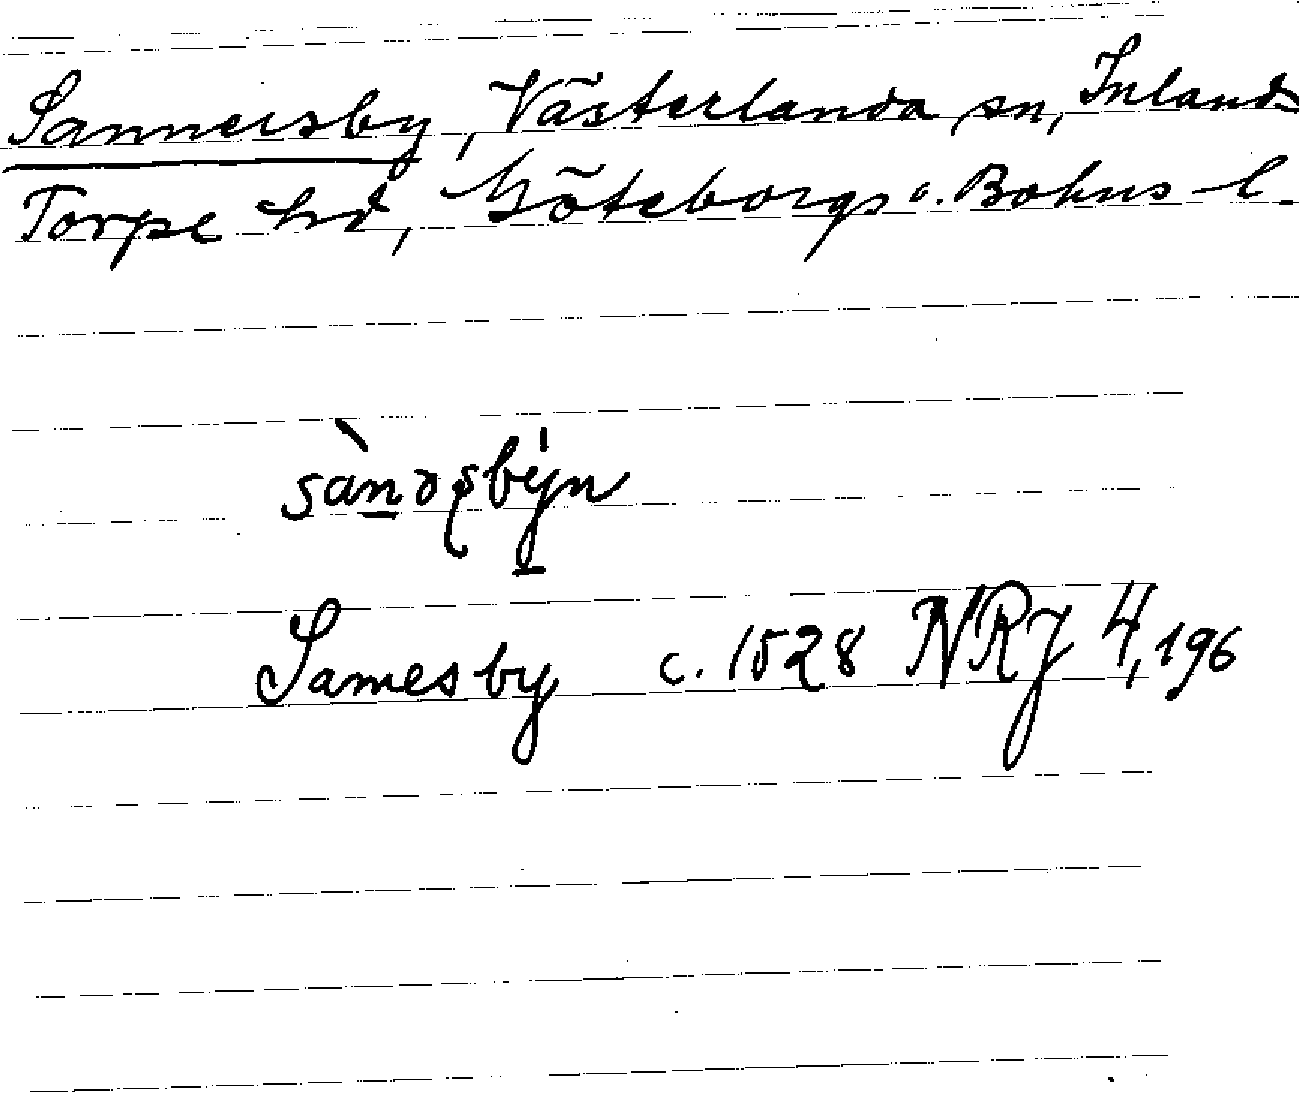 Sannersby, Västerlanda sn, Inland-
Torpe hd, Göteborgs o. Bohus l.
sàn̲əʂbý̲n
Samesby c. 1528 NRJ 4, 196